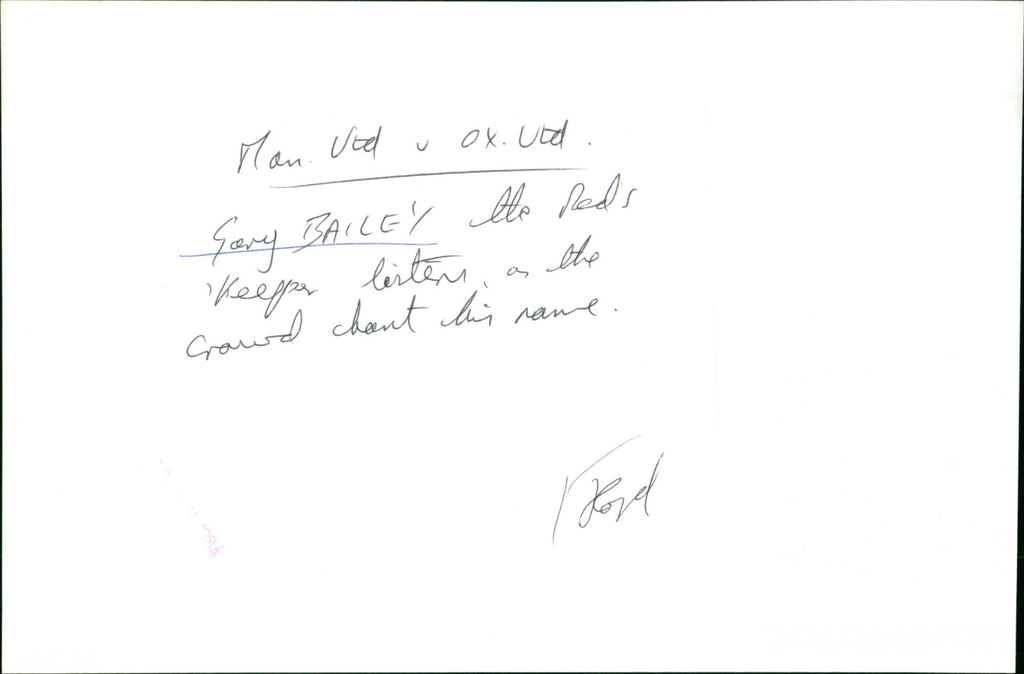 Man. Utd v Ox. Utd.
Gary BAILEY the Red's
'Keeper listens, as the
crowd chant his name.